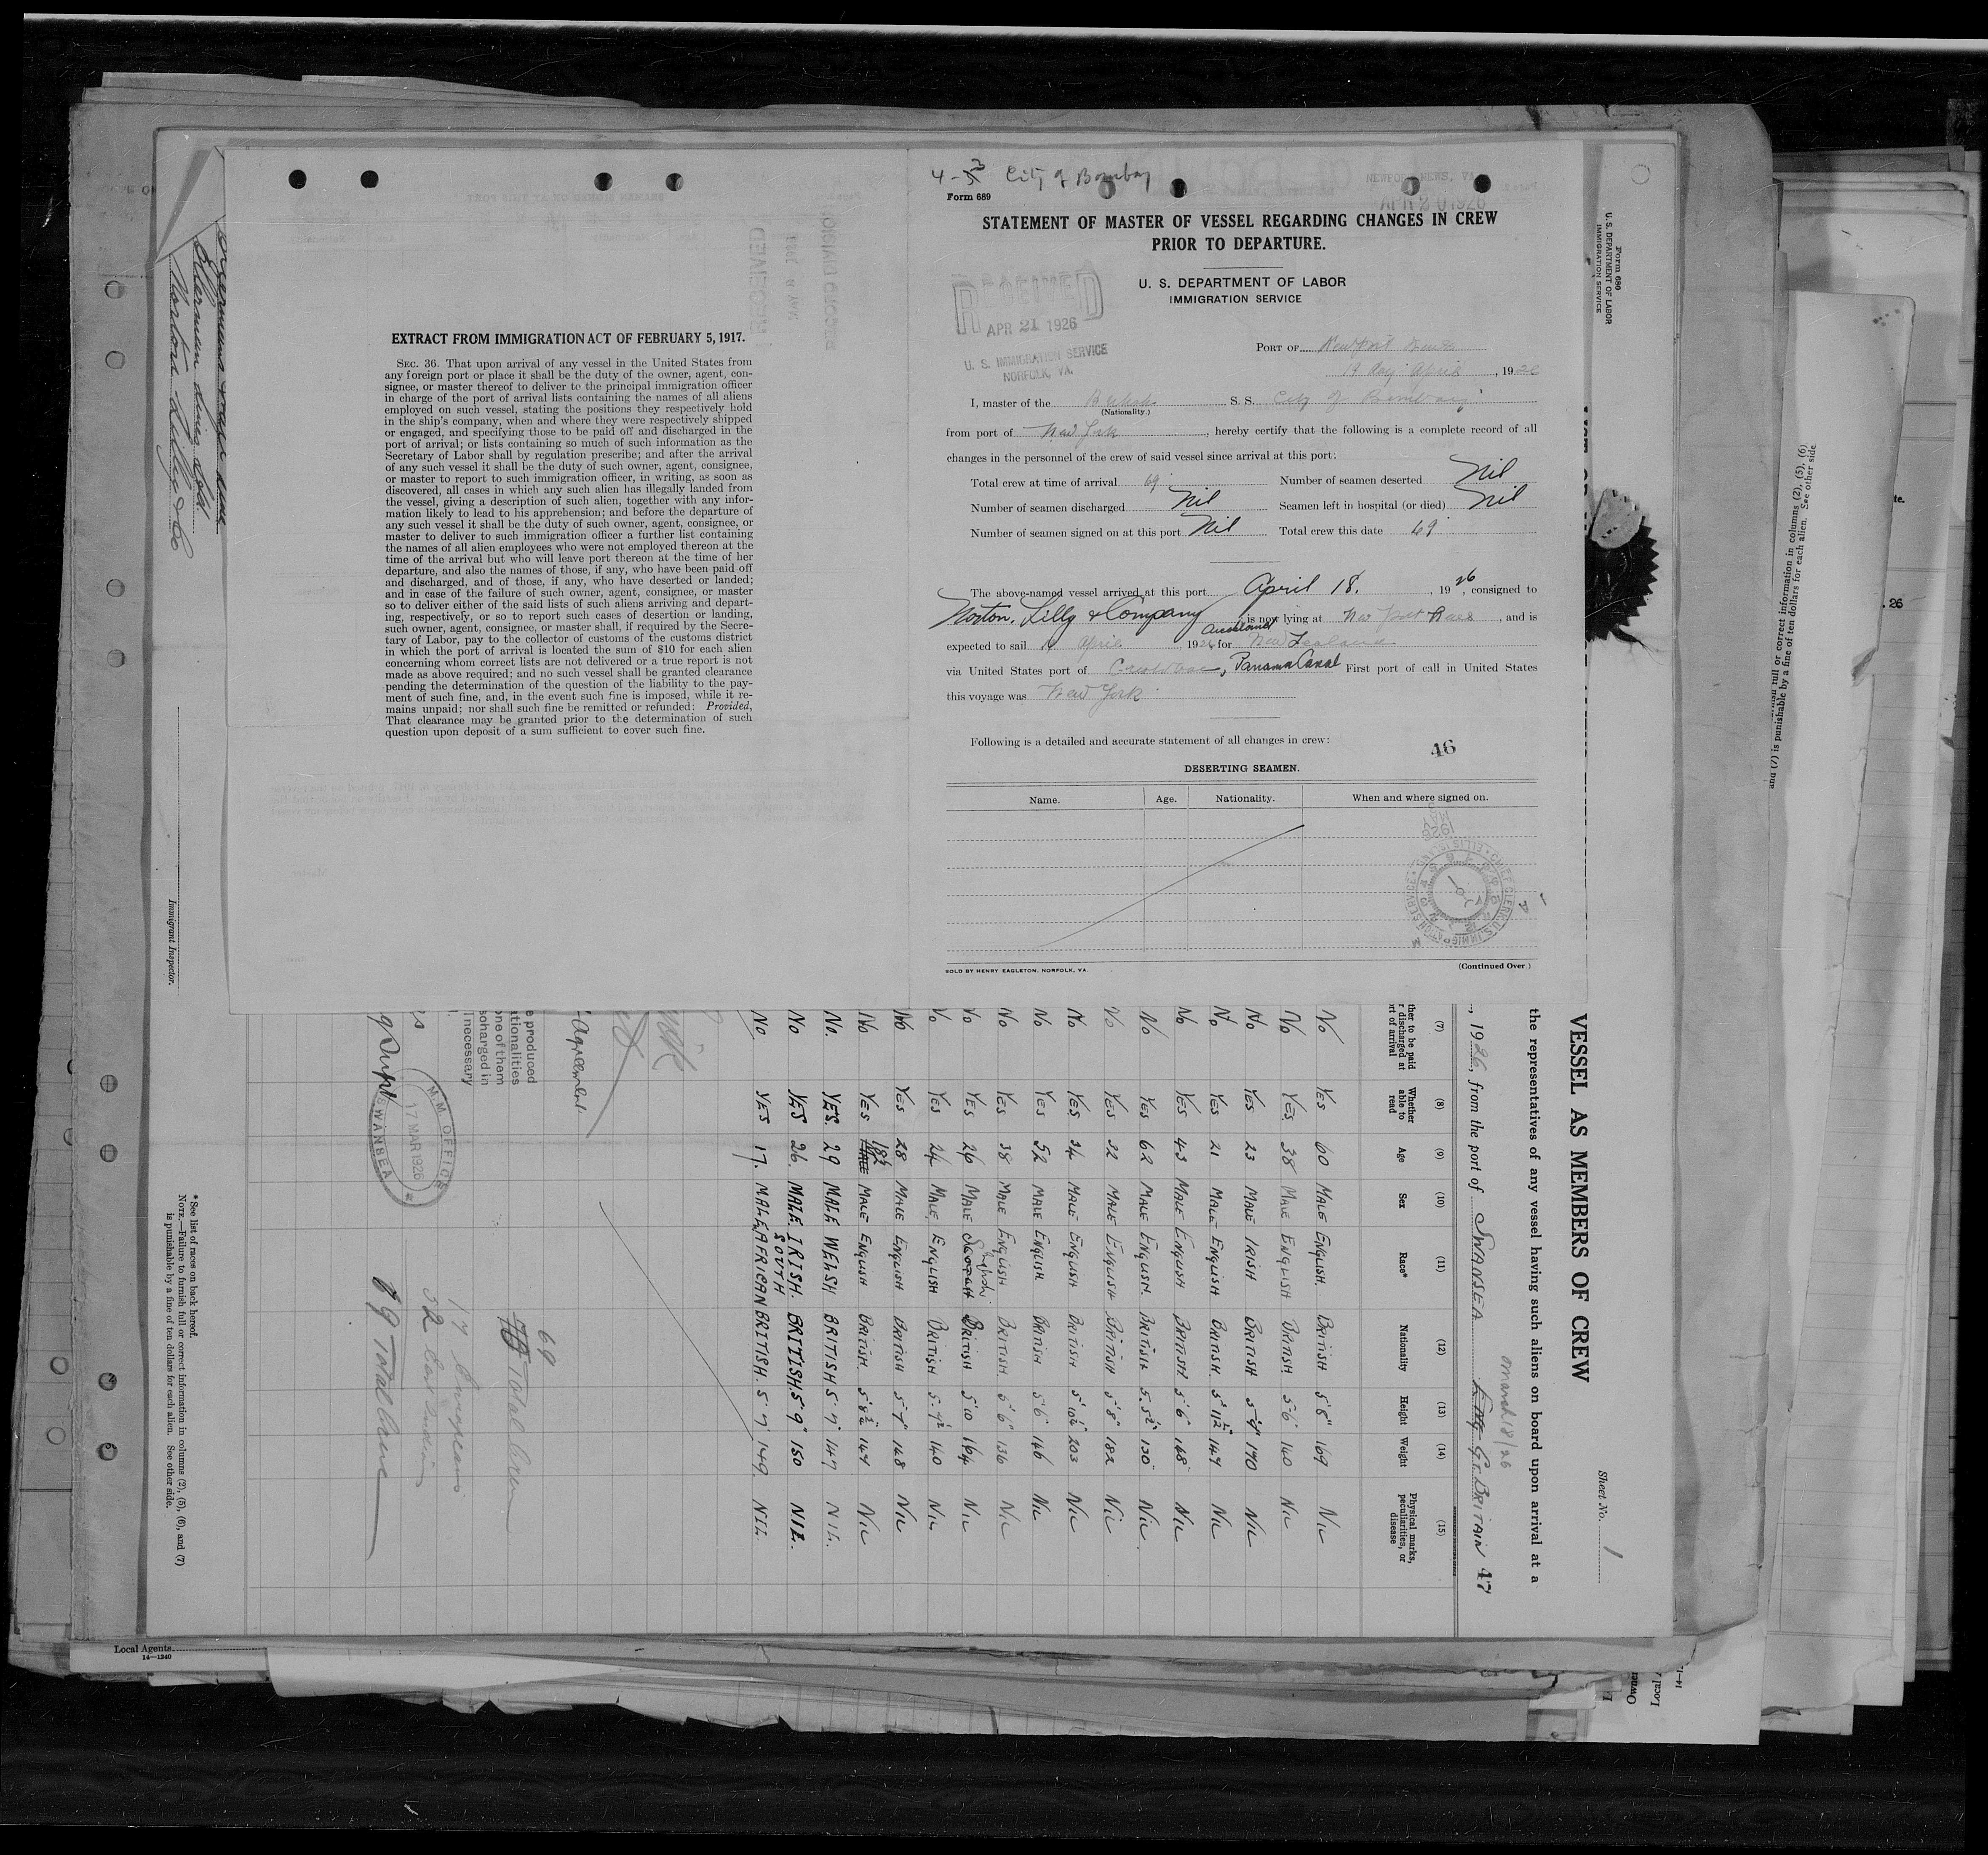 EXTRACT FROM IMMIGRATION ACT OF FEBRUARY 5, 1917.
SEC. 36. That upon arrival of any vessel in the United States from
any foreign port or place it shall be the duty of the owner, agent, con-
signee, or master thereof to deliver to the principal immigration officer
in charge of the port of arrival lists containing the names of all aliens
employed on such vessel, stating the positions they respectively hold
in the ship's company, when and where they were respectively shipped
or engaged, and specifying those to be paid off and discharged in the
port of arrival; or lists containing so much of such information as the
Secretary of Labor shall by regulation prescribe; and after the arrival
of any such vessel it shall be the duty of such owner, agent, consignee,
or master to report to such immigration officer, in writing, as soon as
discovered, all cases in which any such alien has illegally landed from
the vessel, giving a description of such alien, together with any infor-
mation likely to lead to his apprehension; and before the departure of
any such vessel it shall be the duty of such owner, agent, consignee, or
master to deliver to such immigration officer a further list containing
the names of all alien employees who were not employed thereon at the
time of the arrival but who will leave port thereon at the time of her
departure, and also the names of those, if any, who have been paid off
and discharged, and of those, if any, who have deserted or landed;
and in case of the failure of such owner, agent, consignee, or master
so to deliver either of the said lists of such aliens arriving and depart-
ing, respectively, or so to report such cases of desertion or landing,
such owner, agent, consignee, or master shall, if required by the Secre-
tary of Labor, pay to the collector of customs of the customs district
in which the port of arrival is located the sum of $10 for each alien
concerning whom correct lists are not delivered or a true report is not
made as above required; and no such vessel shall be granted clearance
pending the determination of the question of the liability to the pay-
ment of such fine, and, in the event such fine is imposed, while it re-
mains unpaid; nor shall such fine be remitted or refunded: Provided,
That clearance may be granted prior to the determination of such
question upon deposit of a sum sufficient to cover such fine.
City of Bombay
NEWPORT NEWS, VA.
APR 20 1926
Form 689
STATEMENT OF MASTER OF VESSEL REGARDING CHANGES IN CREW
PRIOR TO DEPARTURE.
U. S. DEPARTMENT OF LABOR
IMMIGRATION SERVICE
RECEIVED
APR 21 1926
U. S. IMMIGRATION SERVICE
NORFOLK, VA.
PORT OF Newport News
19 day April, 1926
I, master of the British S. S. City of Bombay
(Nationality.)
from port of New York, hereby certify that the following is a complete record of all
changes in the personnel of the crew of said vessel since arrival at this port:
Total crew at time of arrival 69 Number of seamen deserted Nil
Number of seamen discharged Nil Seamen left in hospital (or died) Nil
Number of seamen signed on at this port Nil Total crew this date 69
The above-named vessel arrived at this port April 18, 1926, consigned to
Norton, Lilly & Company, is now lying at New port News, and is
expected to sail April 1926 for Auckland New Zealand
via United States port of Panama Canal First port of call in United States
this voyage was New York
Following is a detailed and accurate statement of all changes in crew:
46
DESERTING SEAMEN.
Name. Age. Nationality. When and where signed on.
SOLD BY HENRY EAGLETON, NORFOLK, VA.
(Continued Over)
Form 680
U. S. DEPARTMENT OF LABOR
IMMIGRATION SERVICE
Sheet No. 1
VESSEL AS MEMBERS OF CREW
the representatives of any vessel having such aliens on board upon arrival at a
March 18/26
, 1926, from the port of SWANSEA GT. BRITAIN 47
(7) (8) (9) (10) (11) (12) (13) (14) (15)
Whether able to read Age Sex Race* Nationality Height Weight Physical marks, peculiarities, or disease
No YES 60 MALE ENGLISH. BRITISH 5'8" 169 NIL
No YES. 38 MALE ENGLISH BRITISH 5'6" 140 NIL
No YES 23 MALE IRISH BRITISH 5'9" 170 NIL
No YES 21 MALE ENGLISH BRITISH. 5'11½" 147 NIL
No YES 43 MALE ENGLISH BRITISH 5'6" 168 NIL
No YES 62 MALE ENGLISH. BRITISH. 5'5½" 130 NIL.
No YES 32 MALE ENGLISH BRITISH 5'8" 182 NIL
No YES. 34 MALE ENGLISH BRITISH 5'10½" 203 NIL
No YES 52 MALE ENGLISH BRITISH 5'6" 146 NIL
No YES 38 MALE ENGLISH. BRITISH 5'6" 136 NIL
No YES 26 MALE English BRITISH 5'10 164 NIL
No YES 24 MALE. ENGLISH BRITISH 5'9½ 140 NIL
No YES 28 MALE ENGLISH BRITISH 5'7" 148 NIL
No YES 18½ MALE ENGLISH BRITISH 5'8½" 144 NIL
No. YES. 29 MALE WELSH BRITISH 5'7" 147 NIL.
No YES 26. MALE IRISH. BRITISH 5'9" 150 NIL.
No YES 17. MALE SOUTH AFRICAN BRITISH. 5'7" 149. NIL.
Agreement.
69
Total Crew
17 Europeans
52 East Indians
69 Total Crew
M.M. OFFICE
17 MAR 1926
SWANSEA
* See list of races on back hereof.
NOTE.—Failure to furnish full or correct information in columns (2), (5), (6), and (7)
is punishable by a fine of ten dollars for each alien. See other side.
Immigrant Inspector.
Ellerman Lines Ltd
Norton Lilly & Co
Local Agents
14—1240